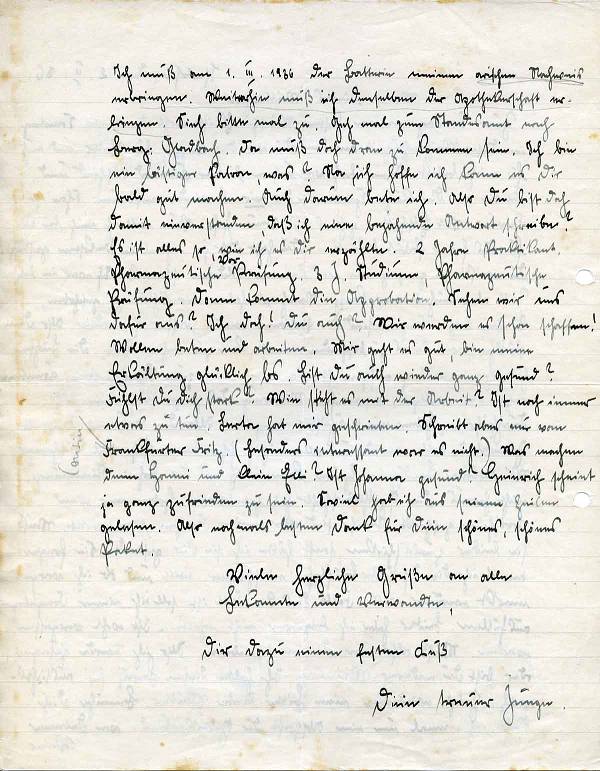 Ich muß am 1. III. 1936 der Batterie meinen arischen Nachweis
erbringen. Weiterhin muß ich denselben der Apothekerschaft er-
bringen. Sieh bitte mal zu. Geh mal zum Standesamt nach
Gladbach. Da muß doch dran zu kommen sein. Ich bin
ein lästiger Patron, was? Na ich hoffe ich kann es dir
bald gut machen. Auch darum bete ich. Also du bist doch
damit einverstanden, daß ich eine bejahende Antwort schreibe?
Es ist alles so, wie ich es dir erzählte. 2 Jahre Praktikant.
Pharmazeutische Vor Prüfung. 3 J. Studium, Pharmazeutische
Prüfung. Dann kommt die Approbation. Sehen wir uns
dafür aus? Ich doch! Du auch? Wir werden es schon schaffen!
Wollen beten und arbeiten. Mir geht es gut, bin meine
Erkältung glücklich los. Bist du auch wieder ganz gesund?
Fühlst du dich stark? Wie steht es mit der Arbeit? Ist noch immer
etwas zu tun. hat mir geschrieben. Schreibt aber nur vom
Frankfurter Fritz. (Besonders interessant war es nicht.) Was machen
denn Hanni und klein Elli? Ist Johanna gesund? Heinrich scheint
ja ganz zufrieden zu sein. Soviel hab ich aus seinem
gelesen. Also nochmals besten Dank für dein schönes, schönes
Paket.
Viele herzliche Grüße an alle
Bekannte und Verwandte,
Dir dazu einen festen Kuß
Dein treuer Junge.